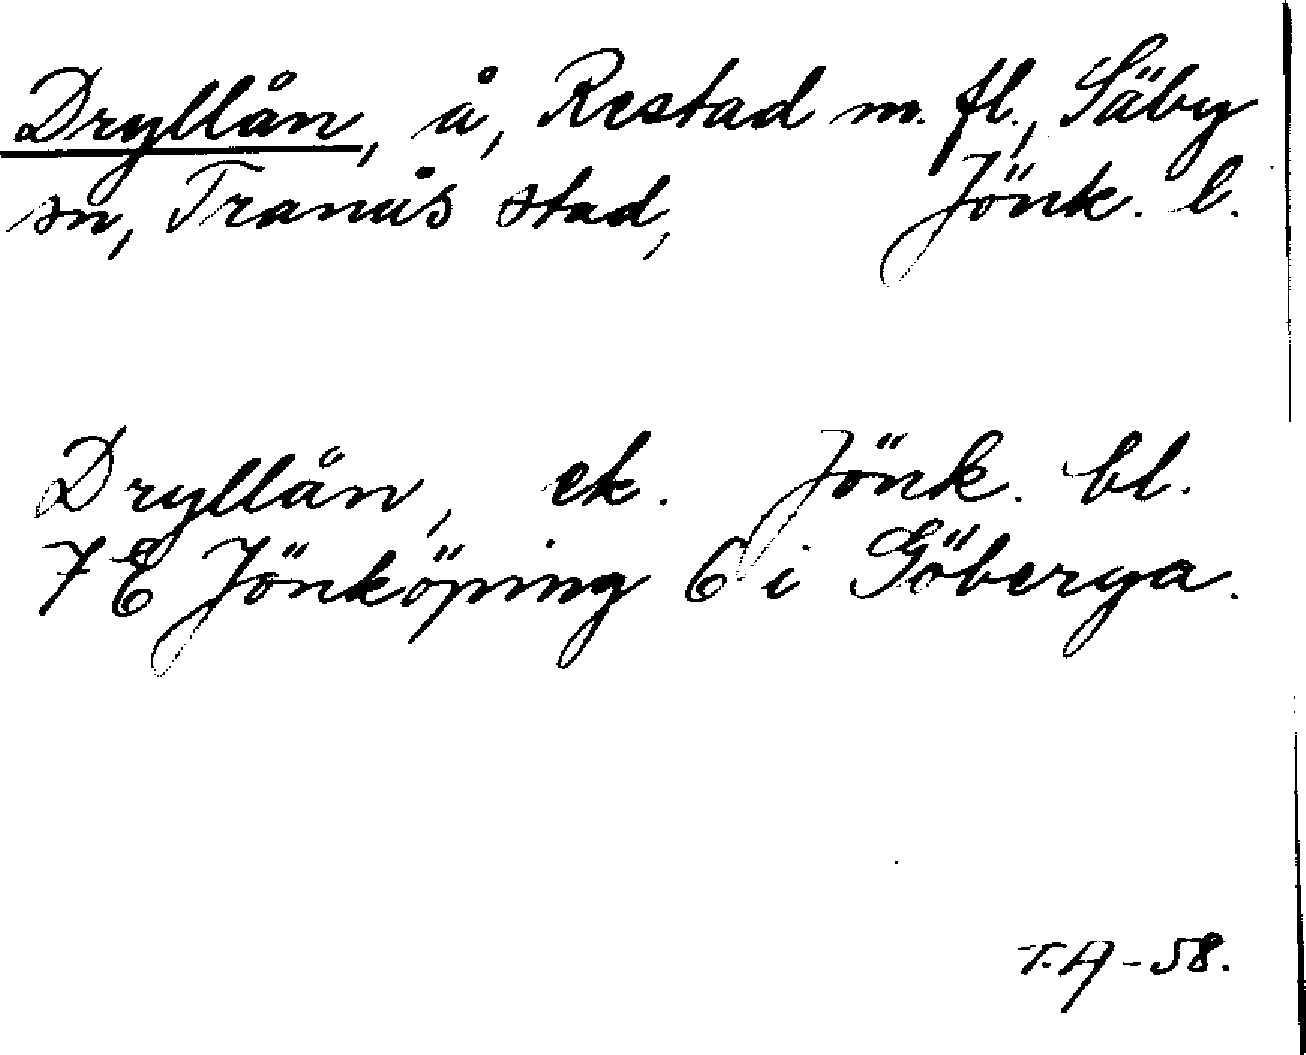 Dryllån, å, Restad m. fl., Säby
sn, Tranås stad, Jönk. l.
Dryllån, ek. Jönk. bl.
7 E Jönköping 6 i Göberga.
T. A - 58.